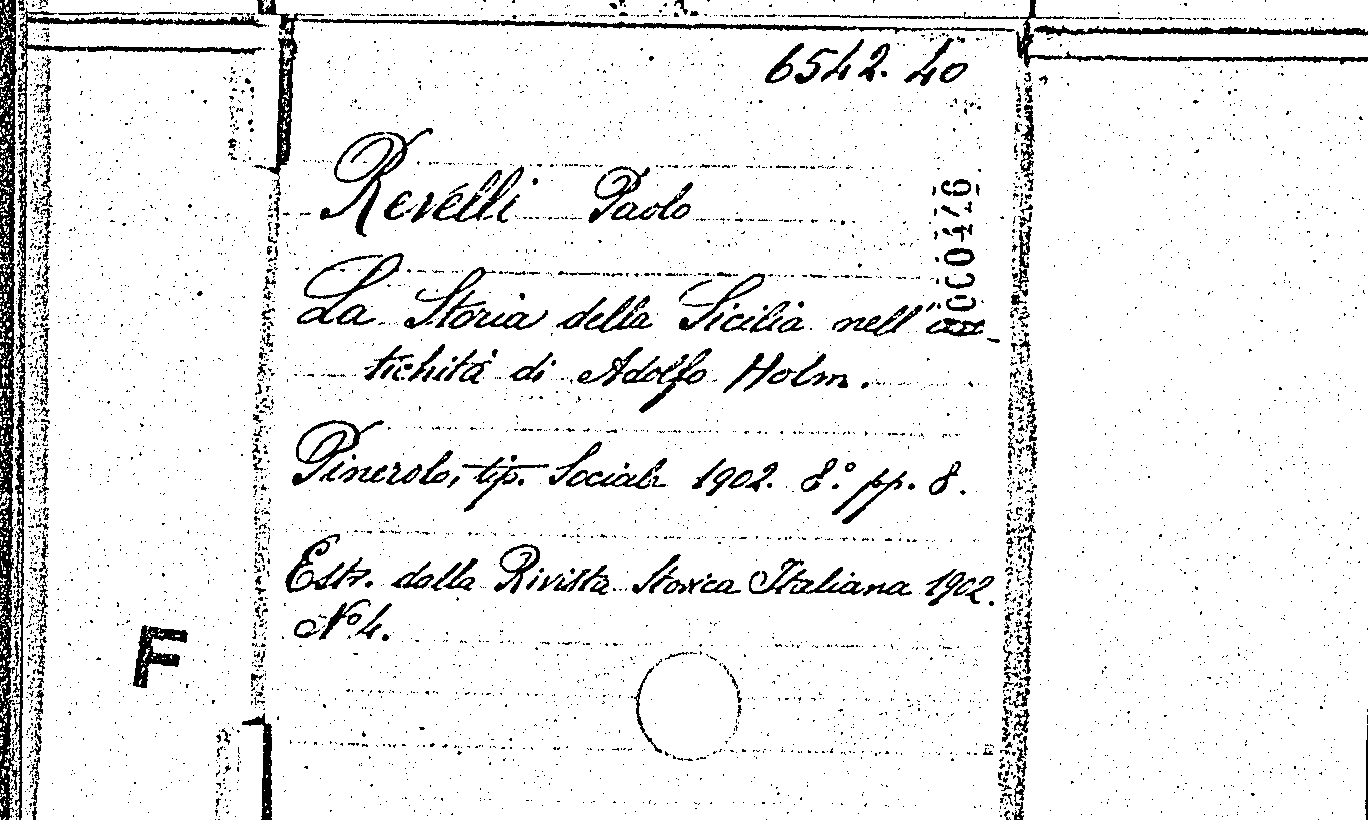 6542. 40
Revelli Paolo
0000446
La Storia della Sicilia nell'an-
tichità di Adolfo Holm.
Pinerolo, tip. Sociale 1902. 8.° pp. 8.
Estr. dalla Rivista Storica Italiana 1902.
N° 4.
F